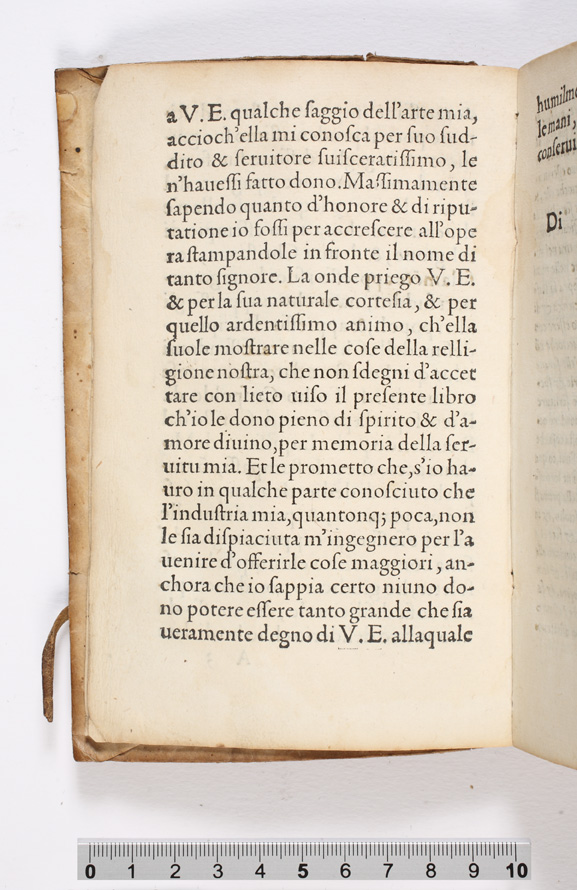 a V. E. qualche ſaggio dell'arte mia,
accioch'ella mi conoſca per ſuo ſud-
dito & ſeruitore ſuiſceratiſſimo, le
n'haueſſi fatto dono. Maſſimamente
ſapendo quanto d'honore & di ripu-
tatione io foſſi per accreſcere all'ope
ra ſtampandole in fronte il nome di
tanto ſignore. La onde priego V. E.
& per la ſua naturale corteſia, & per
quello ardentiſſimo animo, ch'ella
ſuole moſtrare nelle coſe della relli-
gione noſtra, che non ſdegni d'accet
tare con lieto uiſo il preſente libro
ch'io le dono pieno di ſpirito & d'a-
more diuino, per memoria della ſer-
uitu mia. Et le prometto che, s'io ha-
uro in qualche parte conoſciuto che
l'induſtria mia, quantonq; poca, non
le ſia diſpiaciuta m'ingegnero per l'a
uenire d'offerirle coſe maggiori, an-
chora che io ſappia certo niuno do-
no potere eſſere tanto grande che ſia
ueramente degno di V. E. allaquale
humilme
le mani,
conſerui
Di
0 1 2 3 4 5 6 7 8 9 10